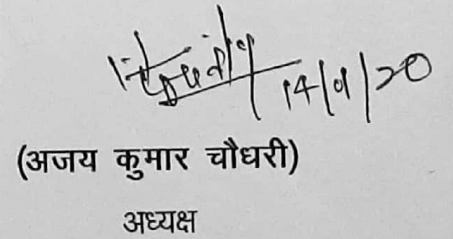 14/9/20
(अजय कुमार चौधरी)
अध्यक्ष